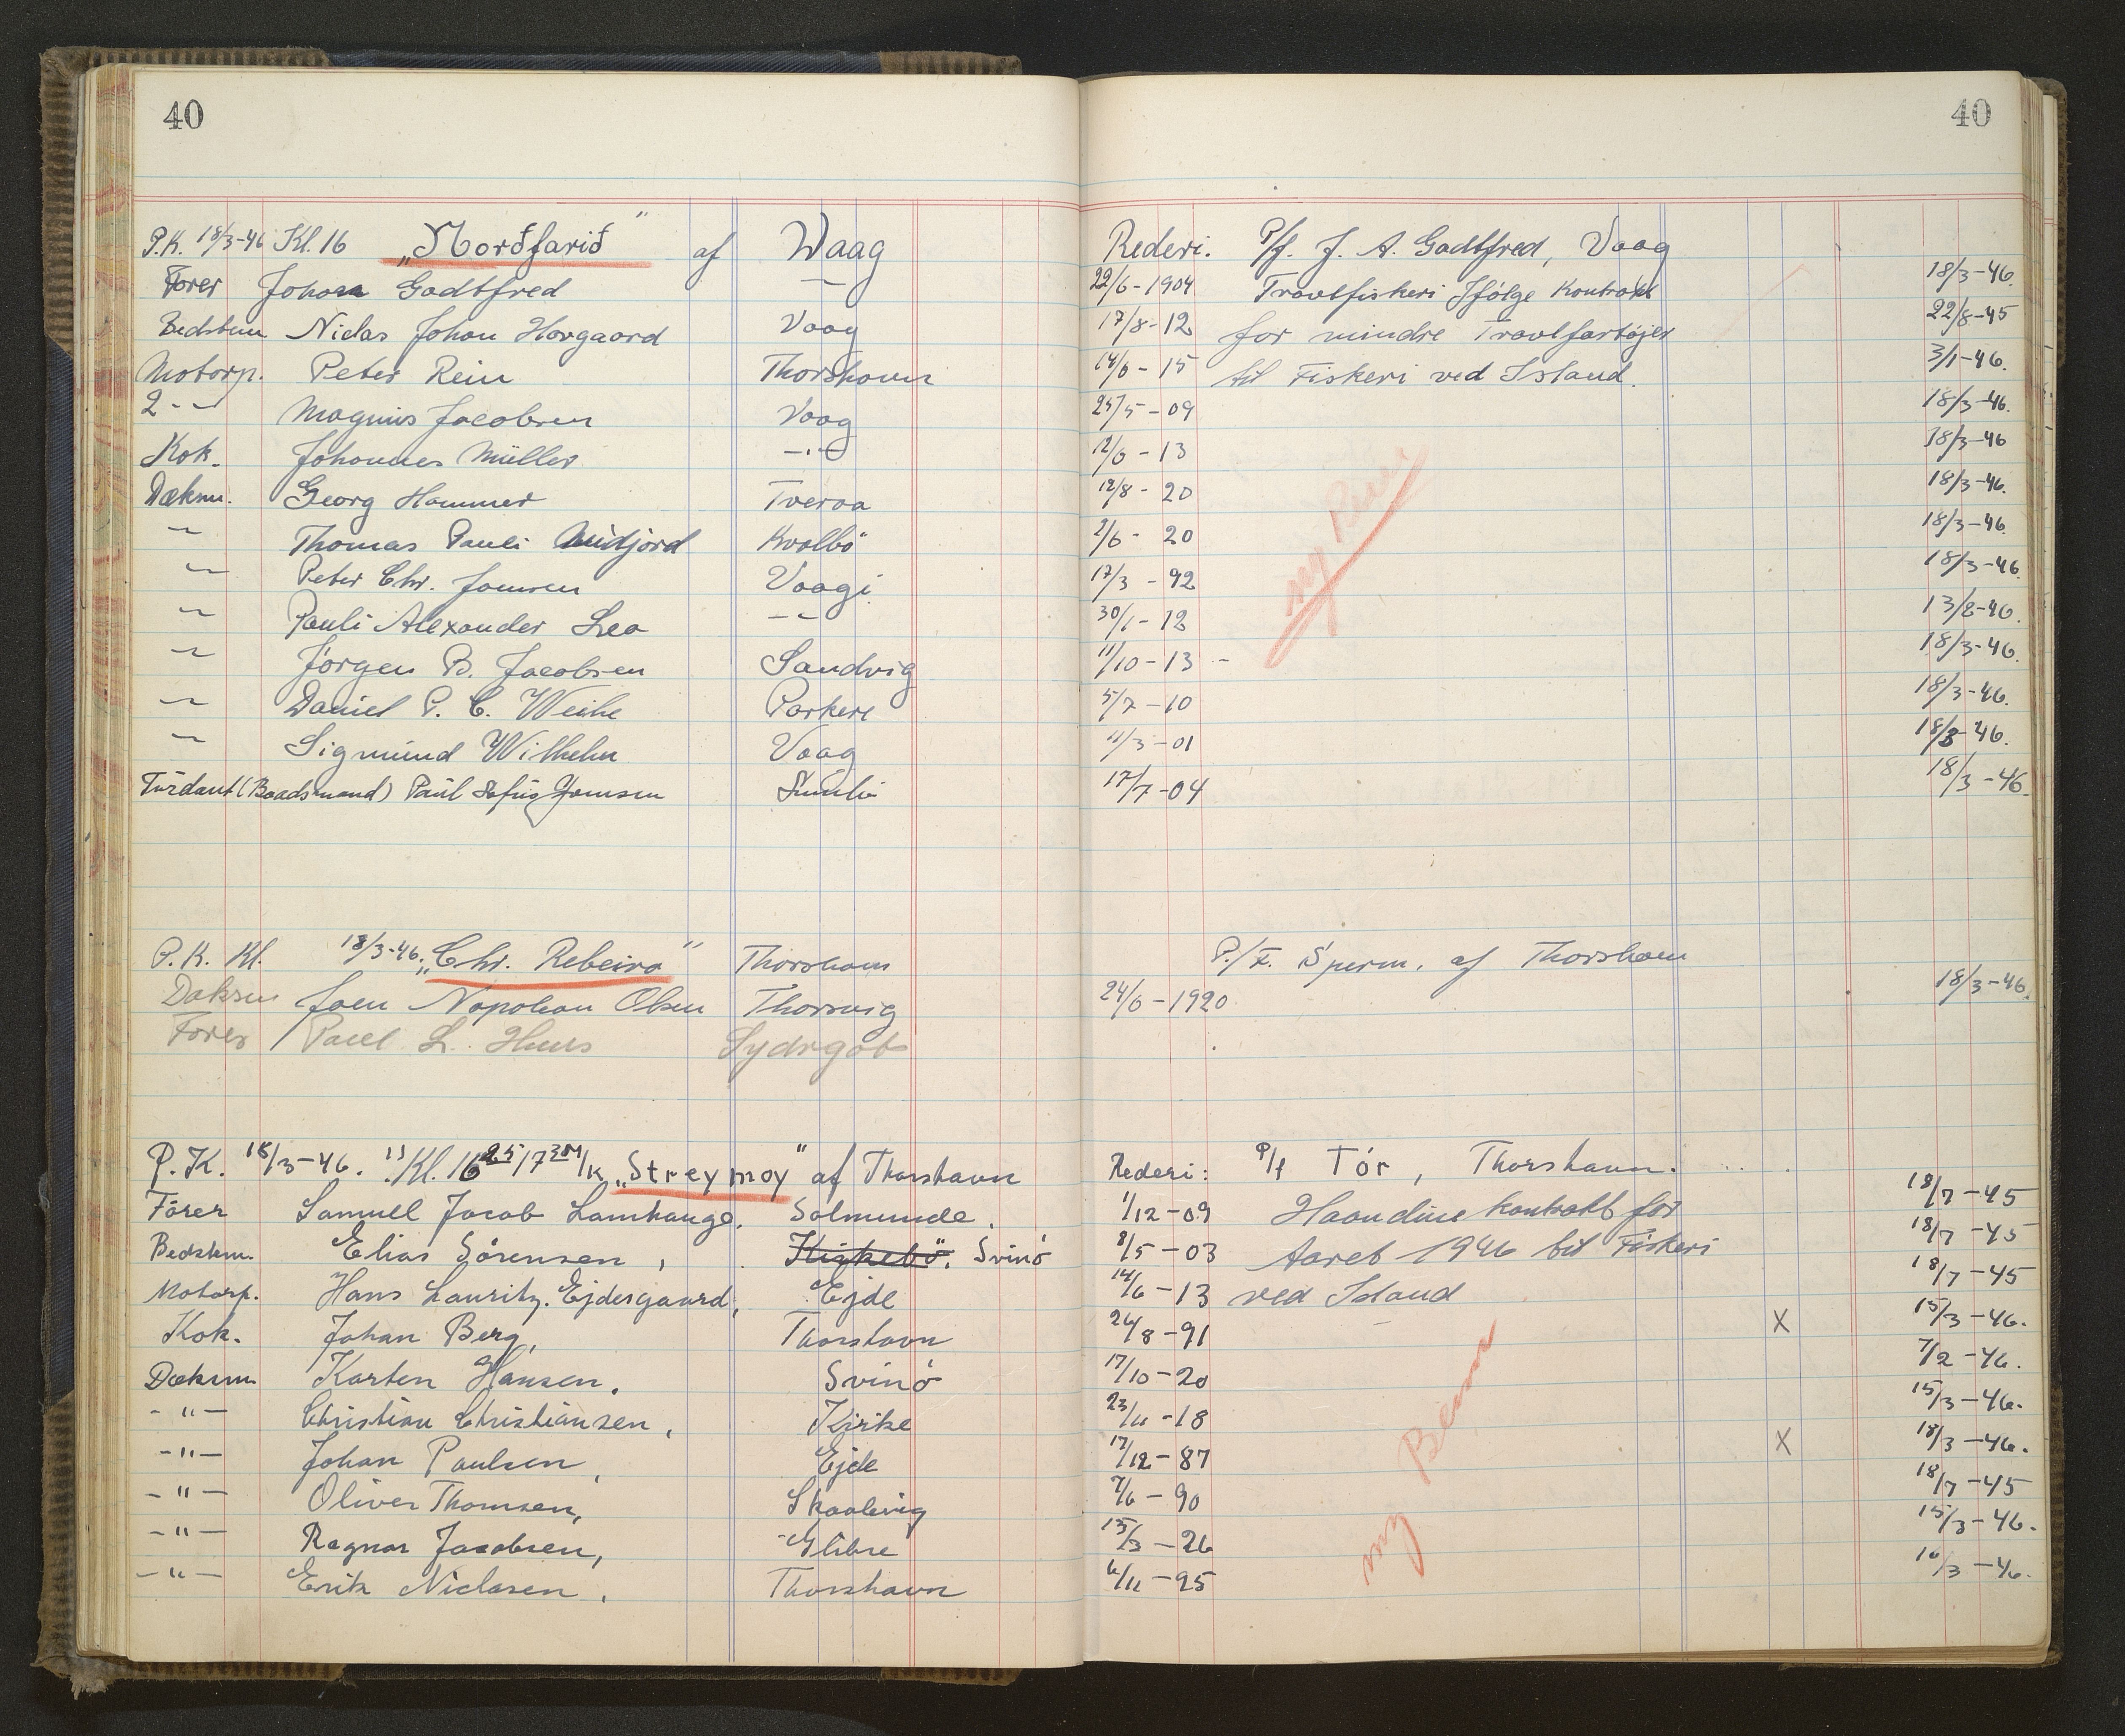 40
40
P.K. 18/3-46 Kl. 16 „Norðfarið" af Waag Rederi. P/f. J. A. Godtfred, Vaag
Fører Johan Godtfred — 22/6-1904 Trawlfiskeri Ifølge Kontrakt 18/3-46.
Bedstm Niclas Johan Hovgaard Vaag 17/8-12 for mindre Trawlfartøjer 22/8-45
Motorp. Peter Rein Thorshavn 14/6-15 til Fiskeri ved Island. 3/1-46.
2 - - Magnus Jacobsen Vaag 25/5-09 18/3-46.
Kok. Johannes Müller -"- 12/6-13 18/3-46
Dæksm. Georg Hammer Tveraa 12/8-20 18/3-46.
— Thomas Pauli Midjord Kvalbö 2/6-20 18/3-46.
— Peter Chr. Joensen Vaag 17/3-92 18/3-46.
— Pauli Alexander Leo -- 30/1-12 13/2-46.
— Jörgen B. Jacobsen Sandvig 11/10-13 - 18/3-46.
— Daniel P. C. Weihe Porkere 5/7-10 18/3-46.
— Sigmund Wilhelm Vaag 11/3-01 18/3-46.
(Baadsmand) Paul Joensen 17/7-04 18/3-46.
ny
P. K. Kl. 18/3-46. „Chr. Rebeira" Thorshavn P./F. Sperm. af Thorshavn
Dæksm Joen Napoleon Olsen Thorsvig 24/6-1920 18/3-46.
Fører Paul L. Sydrgöt
P.K. 18/3-46. Kl. 16 25/17 „Streymoy" af Thorshavn Rederi: P/f Tór, Thorshavn.
Förer Samuel Jacob Lamhauge, Solmunde. 1/12-09 Haandline kontrakt for 18/7-45
Bedstm. Elias Sörensen, Kirkebö. Svinó 8/5-03 Aaret 1946 til Fiskeri 18/7-45
Motorp. Hans Lauritz. Ejdesgaard, Ejde 14/6-13 ved Island 18/7-45
Kok. Johan Berg, Thorshavn 24/8-91 X 15/3-46.
Dæksm Karsten Hansen. Svinó 17/10-20 7/2-46.
-"- Christian Christiansen, Kirke 23/11-18 15/3-46.
-"- Johan Paulsen, Ejde 17/12-87 X 18/3-46.
-"- Oliver Thomsen, Skaalevig 7/6-90 18/7-45
-"- Ragnar Jacobsen, Glibre 15/3-26 15/3-46.
-"- Erik Niclasen. Thorshavn 6/11-25 16/3-46.
ny